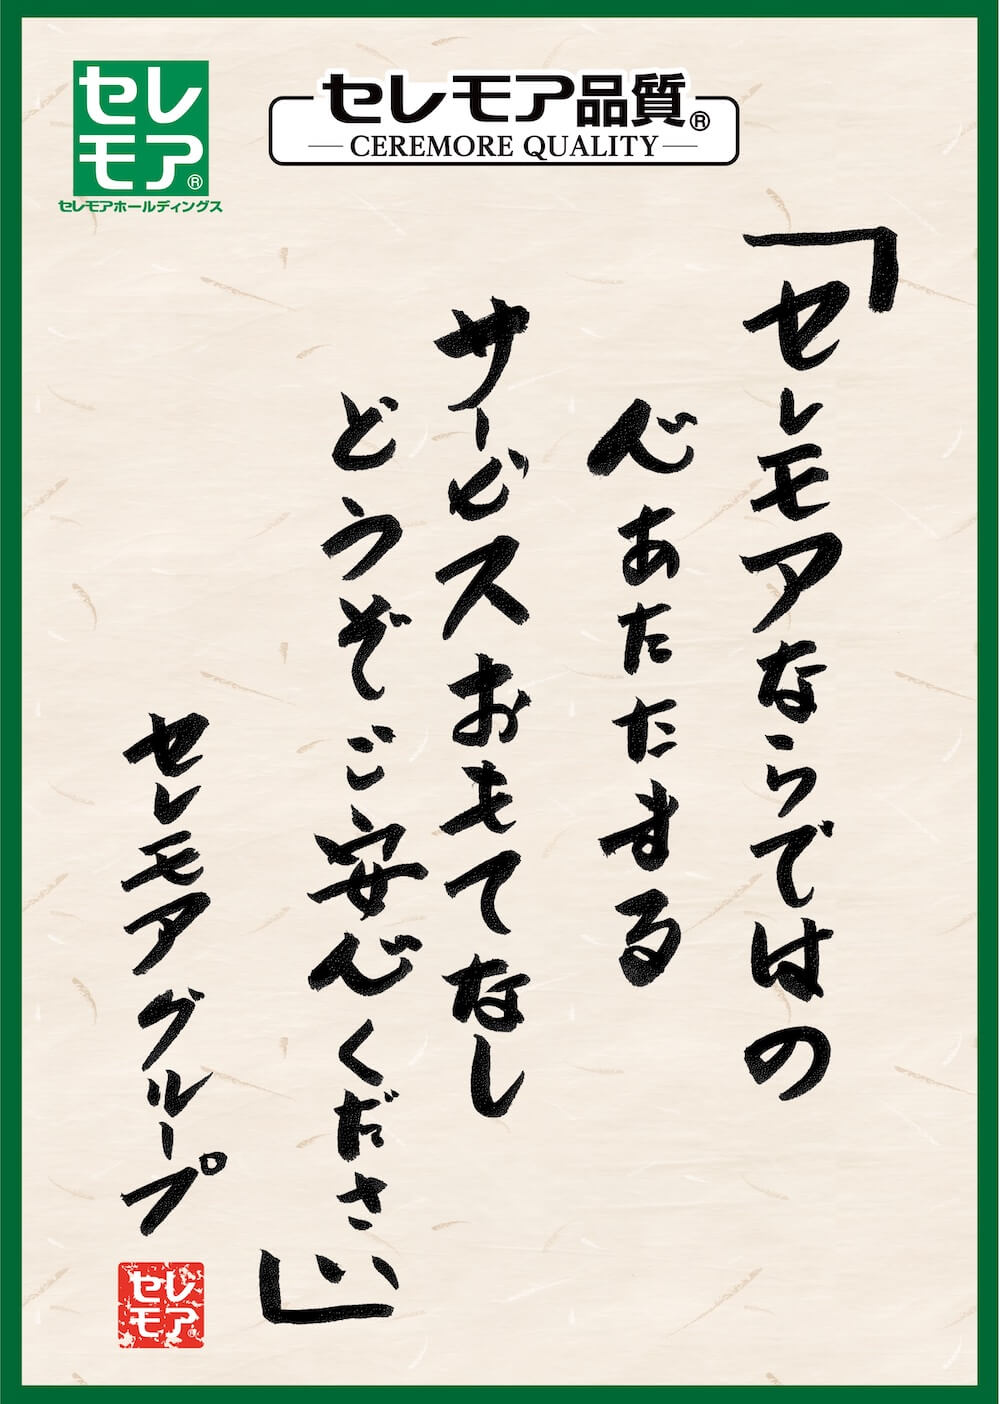 セレ
モア®
セレモアホールディングス
セレモア品質®
CEREMORE QUALITY
「セレモアならではの
心あたたまる
サービスおもてなし
どうぞご安心ください」
セレモアグループ
セレ
モア®